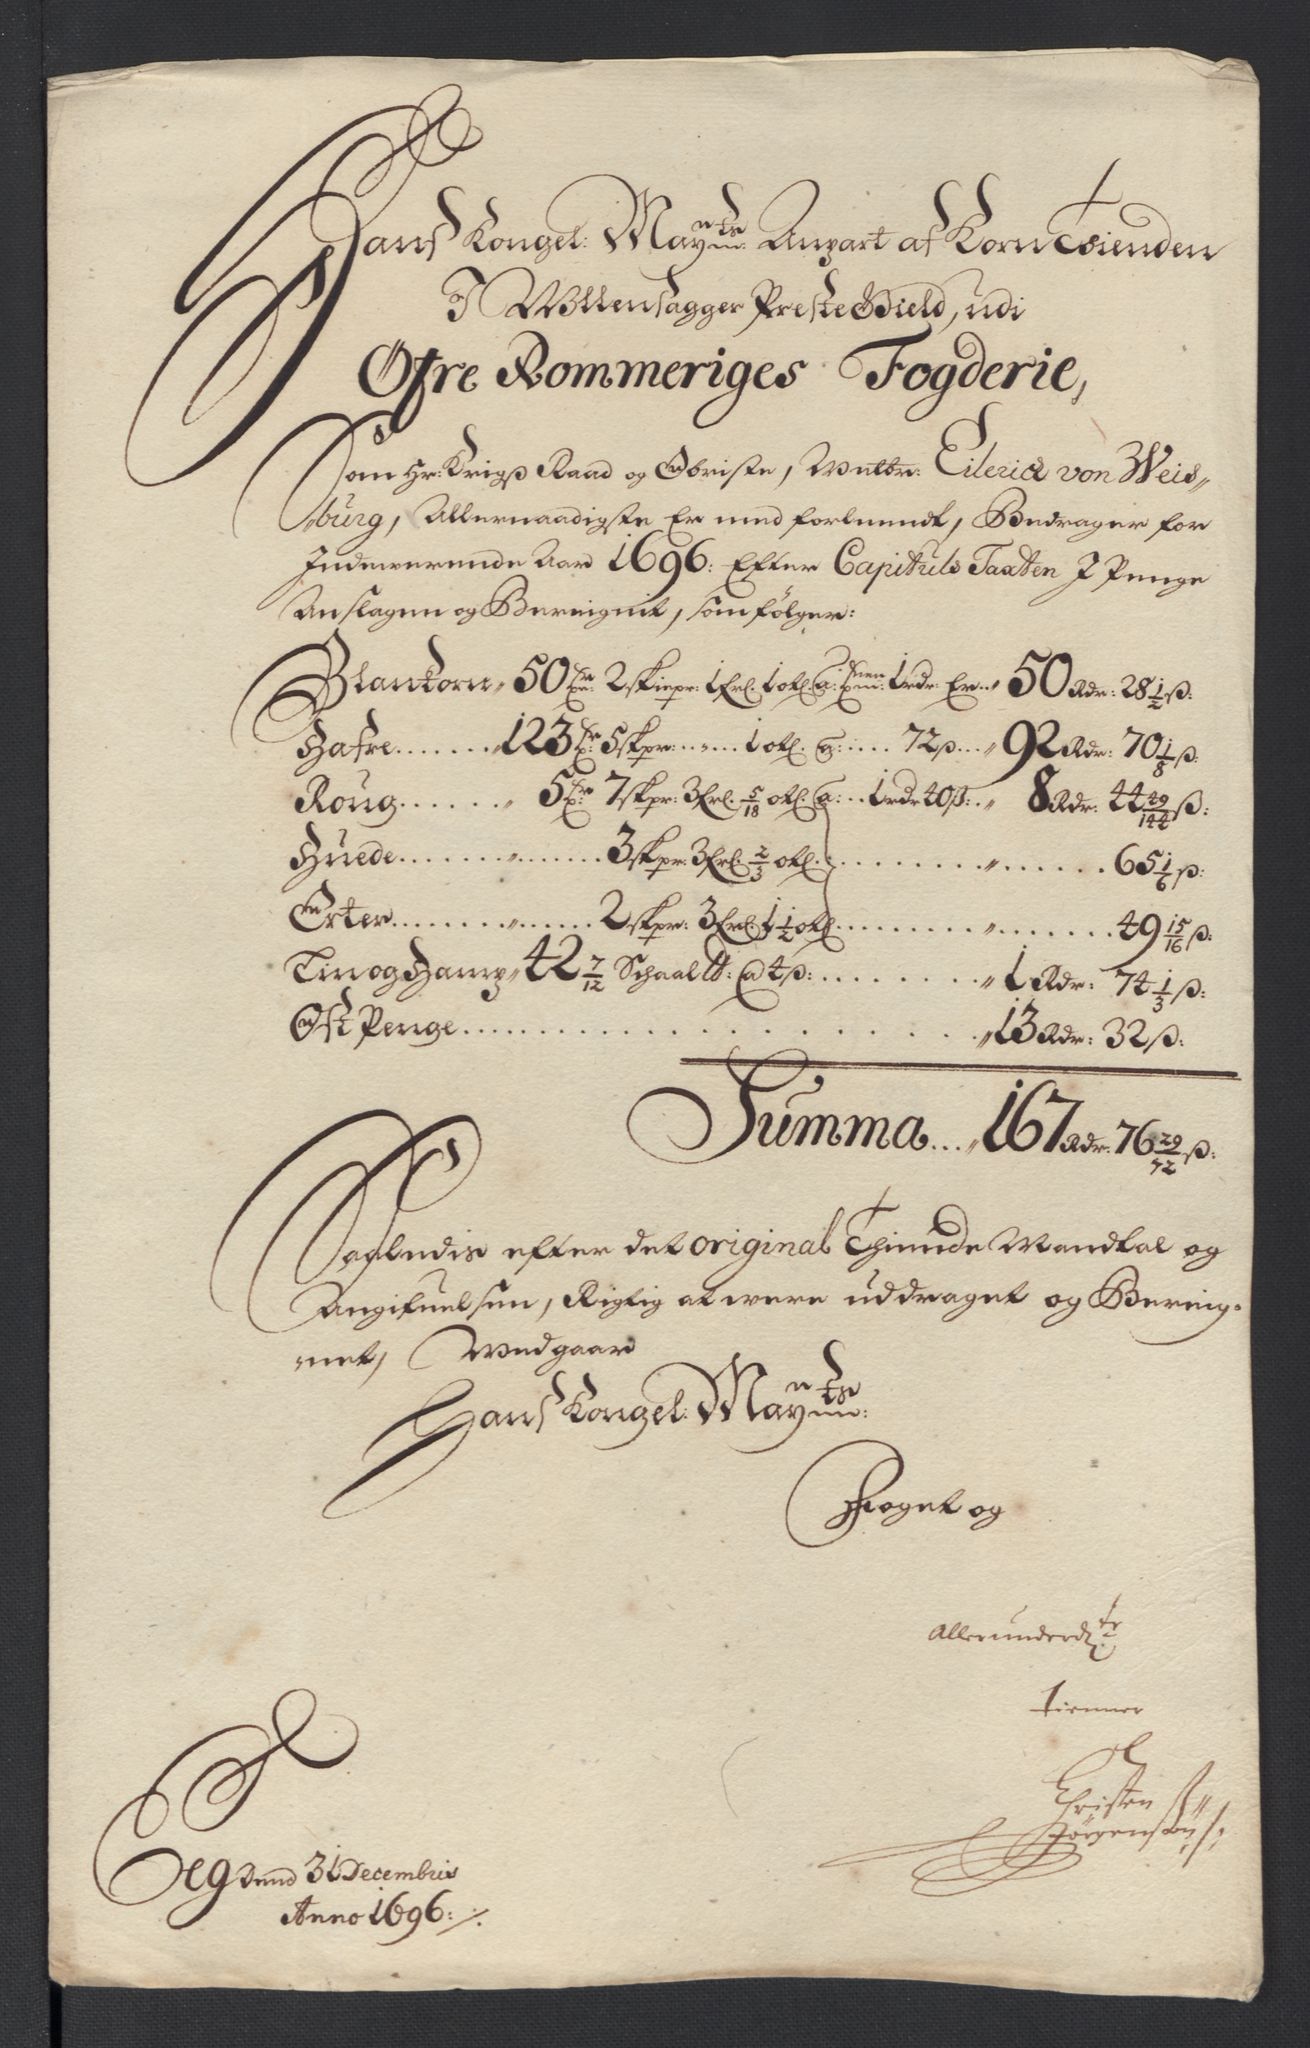 Hans Kongel: May:ts Anpart af Korn Tienden
I Ullensagger Preste Gield, udi
Øfre Rommeriges Fogderie,
Som Hr: Krigs Raad og Obriste, Velbr: Eilerich von Weis„
„burg, Allernaadigste Er med forlendt, Bedrager for
Indewerende Aar 1696: Efter Capituls Taxten J Penge
Anslagen og Bereignit, som følger:
Blankorn „ 50 Tr: 2 skiepr: 1 frl. 1 otl. a: 1 rdr: Er „ 50 Rdr: 28 1/2 ß:
Hafre ....... „ 123 Tr: 5 skpr: ... „ ... 1 otl. a: .... 72 ß ... „ 92 Rdr: 70 1/8 ß:
Roug ....... „ 5 Tr: 7 skpr: 3 frl. 5/18 otl. a: .. 1 rdr 40 ß: „ 8 Rdr: 44 29/144 ß:
Huede ........ „ ....... 3 skpr: 3 frl. 2/3 otl. ........... „ ....... 65 1/6 ß:
Erter ....... „ ...... 2 skpr: 3 frl. 1 1/2 otl ........... „ ....... 49 15/16 ß:
Lin og Hamp „ 42 7/12 Schaal ℔: a 4 ß: ......... „ 1 Rdr: 74 1/3 ß:
Ost Penge ........................ „ 13 Rdr: 32 ß:
Summa ... „ 167 Rdr: 76 29/72 ß:
Saaledis efter det original Thiende Mandtal og
Angifuelsen, Rigtig at were uddraget og Bereig„
net, Vedgaar
Hans Kongel: May:ts
Foget og
Allerunderd:
tienner
Christen
Jørgensøn
Eeg dend 31 Decembris
Anno 1696: